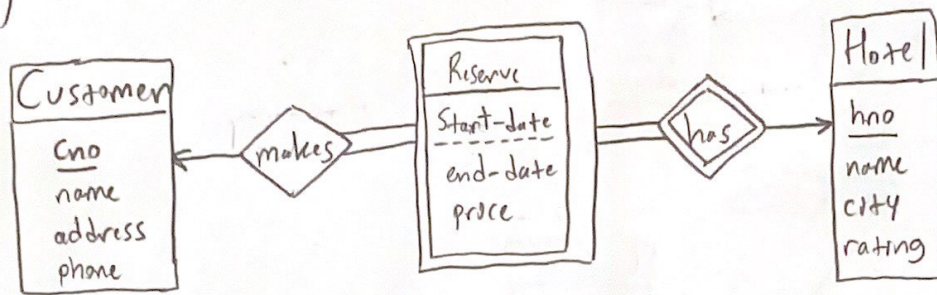 )
Customer
cno
name
address
phone
makes
Reserve
Start-date
end-date
price
has
Hotel
hno
name
city
rating